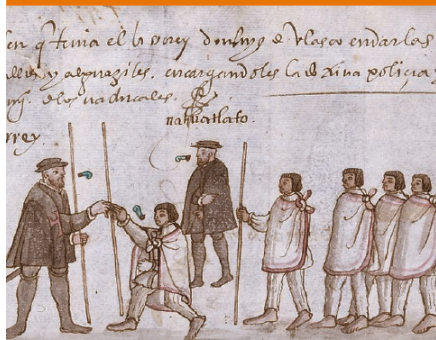 en q̄ tenia el bisorey don luys de Velasco en dar las
y alguaziles. encargandoles la doctrina policia y
de los naturales.
nahuatlato.
rrey.